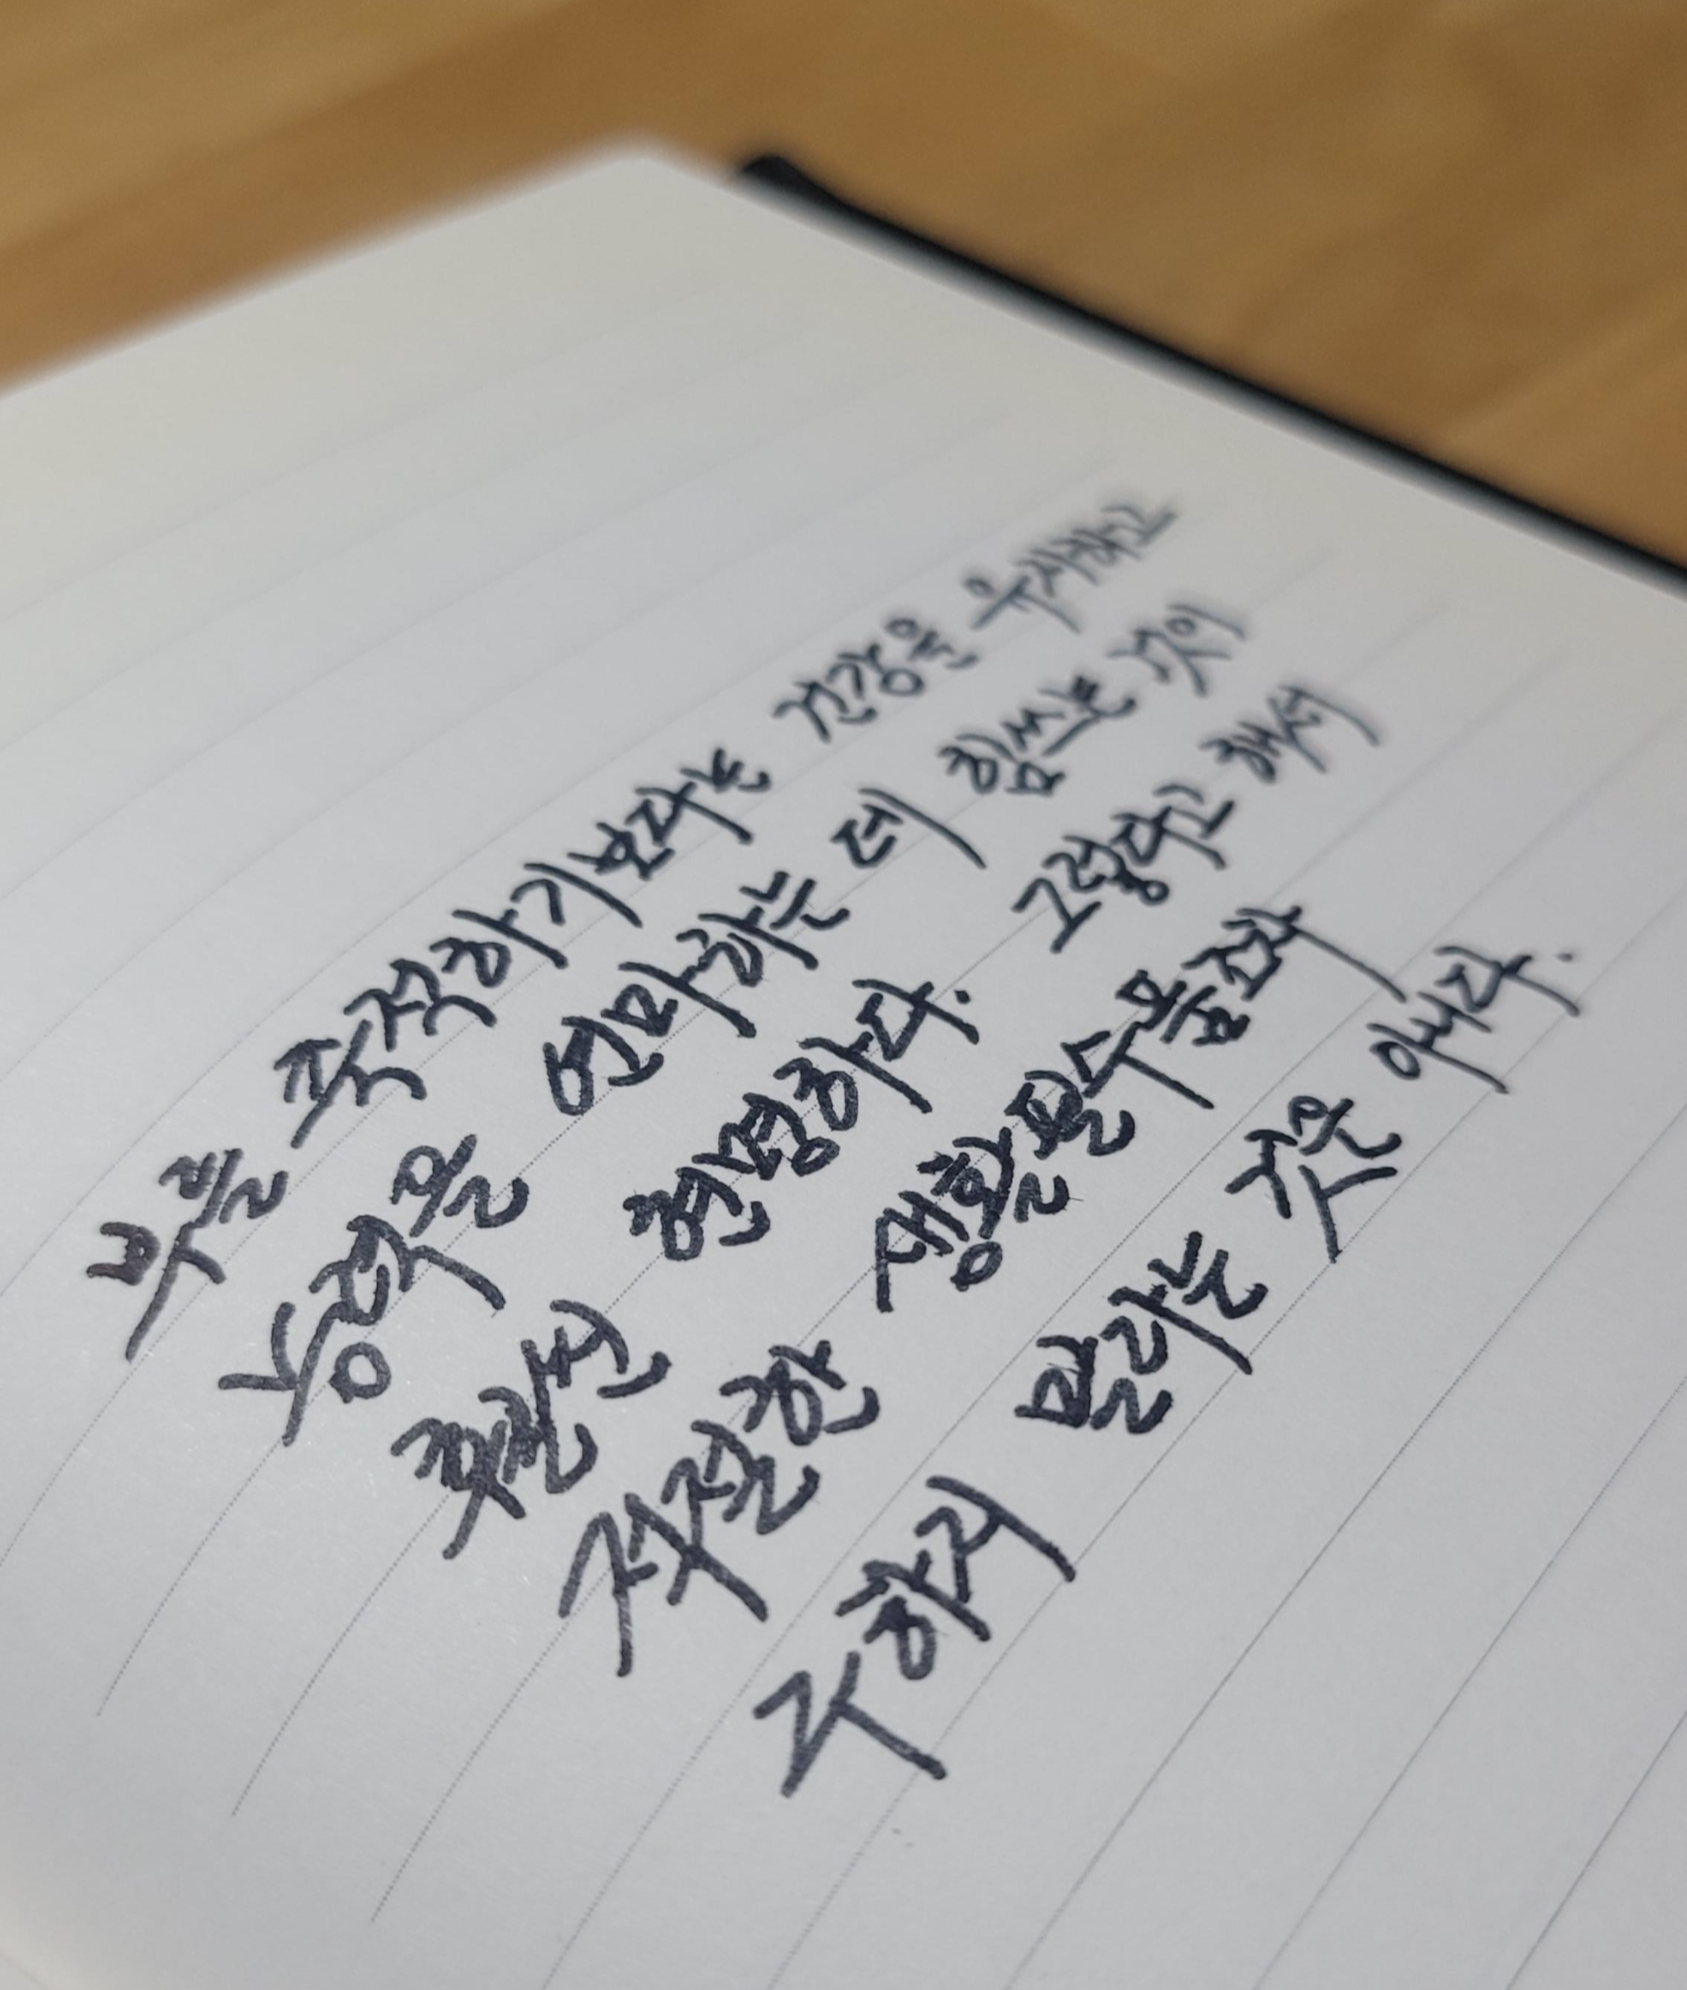 부를 축적하기보다는 건강을 유지하고
능력을 연마하는 데 힘쓰는 것이
훨씬 현명하다. 그렇다고 해서
적절한 생활필수품조차
구하지 말라는 것은 아니다.